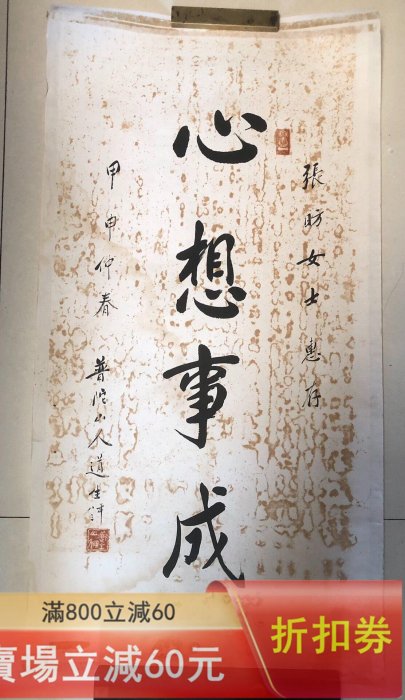 張昉女士惠存
心想事成
甲申仲春 普陀山人道生
滿800立減60
賣場立減60元
折扣券